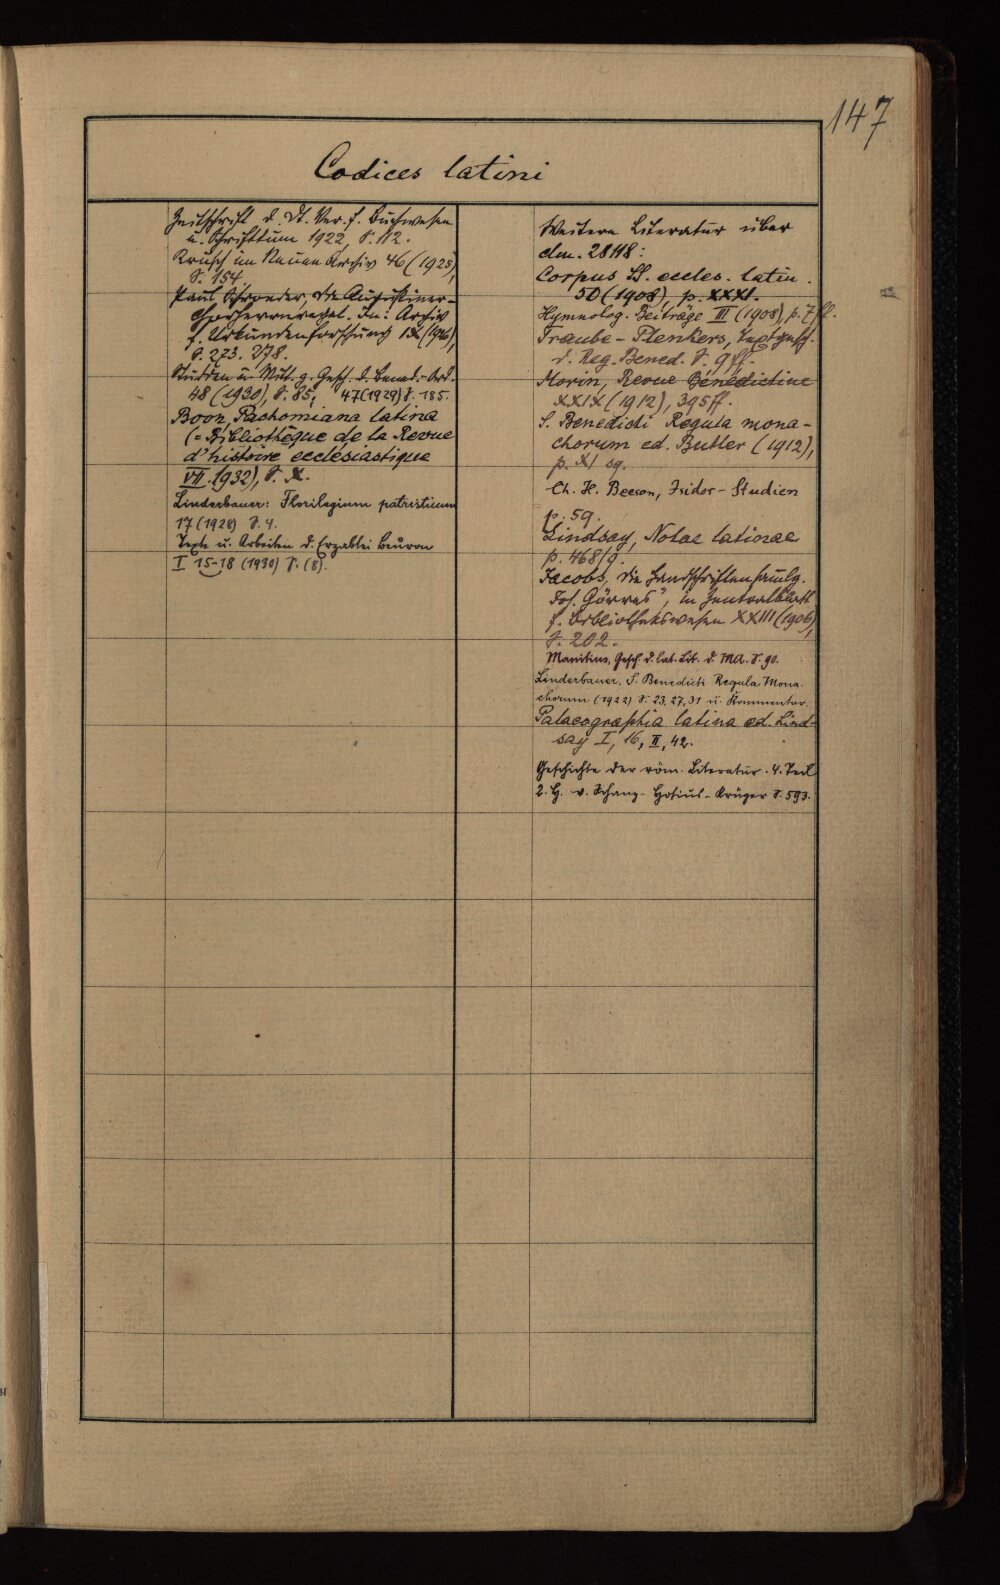 147
Codices latini
Zeitschrift d. Dt. Ver. f. Buchwesen
u. Schrifttum 1922, S. 112.
Krusch im Neuen Archiv 46 (1925),
S. 154
Paul Schroeder, Die Augustiner-
chorherrenregel. In: Archiv
f. Urkundenforschung IX (1926),
S. 273. 278.
Studien u. Mitt. z. Gesch. d. Bened.-Ord.
48 (1930), S. 85; 47 (1929) S. 185.
Boon, Pachomiana latina
(= Bibliothèque de la Revue
d'histoire ecclésiastique
VII. 1932), S. X.
Linderbauer: Florilegium patristicum
17 (1928) S. 4.
Texte u. Arbeiten d. Erzabtei Beuron
I 15-18 (1930) S. (8).
Weitere Literatur über
clm. 28118:
Corpus SS. eccles. latin.
50 (1908), p. XXXI.
Hymnolog. Beiträge III (1908), p. 7 ff.
Traube-Plenkers, Textgesch.
d. Reg. Bened. S. 9 ff.
Morin, Revue Bénédictine
XXIX (1912), 395 ff.
S. Benedicti Regula mona-
chorum ed. Butler (1912),
p. XI sq.
Ch. H. Beeson, Isidor-Studien
p. 59.
Lindsay, Notae latinae
p. 468/9.
Jacobs, Die Handschriftensamlg.
Jos. Görres", in Zentralblatt
f. Bibliothekswesen XXIII (1906),
S. 202.
Manitius, Gesch. d. lat. Lit. d. MA. S. 90.
Linderbauer, S. Benedicti Regula Mona-
chorum (1922) S. 23, 27, 31 u. Kommentar.
Palaeographia latina ed. Lind-
say I, 16, II, 42.
Geschichte der röm. Literatur. 4. Teil
2. H. v. Schanz-Hosius-Krüger S. 593.